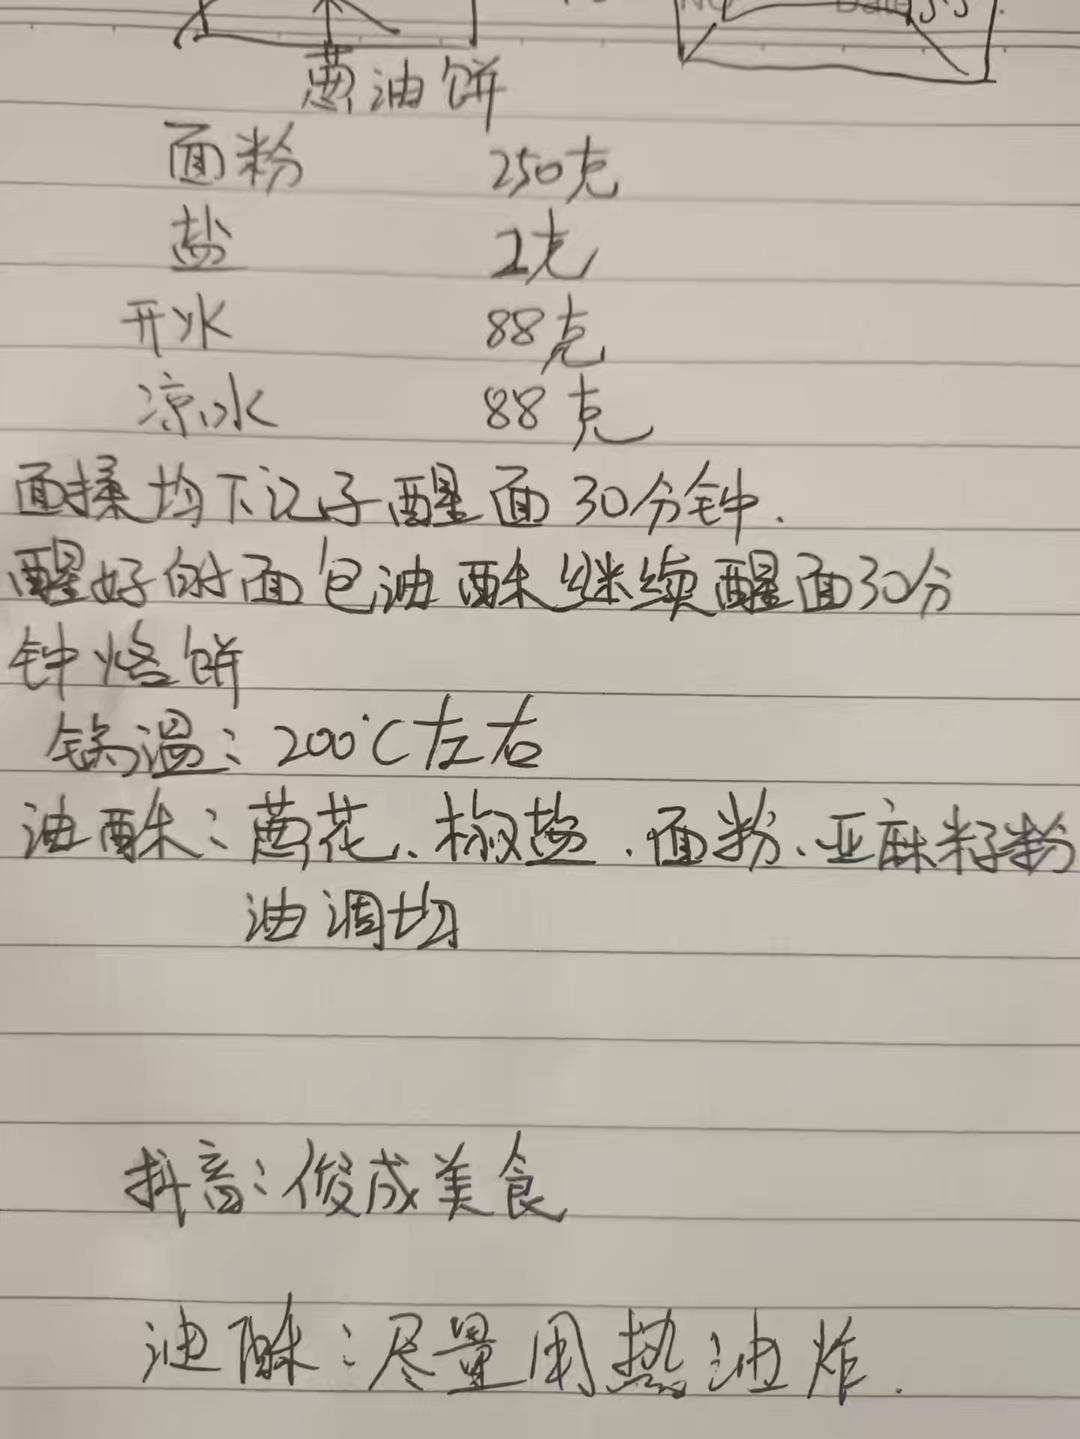 葱油饼
面粉 250克
盐 2克
开水 88克
凉水 88克
面揉均下记子醒面30分钟.
醒好的面包油酥继续醒面30分
钟烙饼
锅温:200℃左右
油酥:葱花、椒盐、面粉、亚麻籽粉
油调均
抖音:俊成美食
油酥:尽量用热油炸.